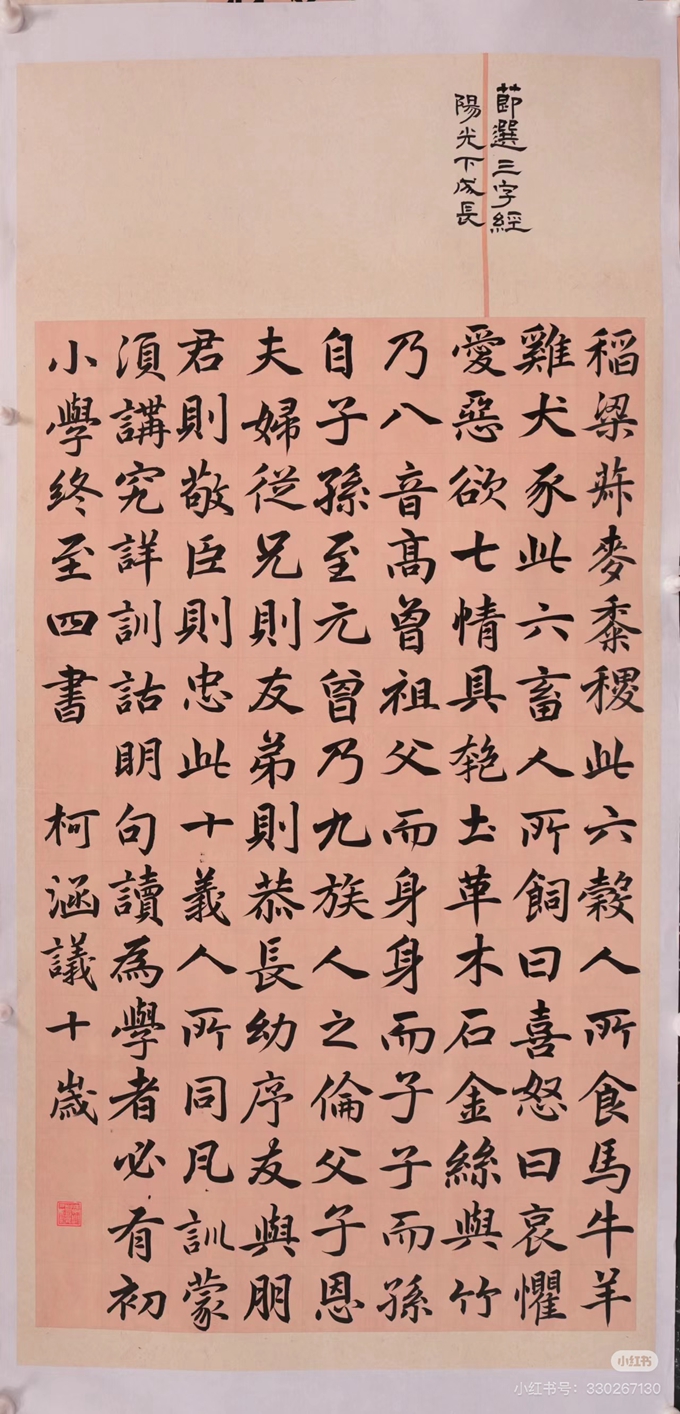 節選三字經
陽光下成長
稻梁菽麥黍稷此六穀人所食馬牛羊
雞犬豕此六畜人所飼曰喜怒曰哀懼
愛惡欲七情具匏土革木石金絲與竹
乃八音高曾祖父而身身而子子而孫
自子孫至元曾乃九族人之倫父子恩
夫婦從兄則友弟則恭長幼序友與朋
君則敬臣則忠此十義人所同凡訓蒙
須講究詳訓詁明句讀為學者必有初
小學終至四書 柯涵議十歲
小红书
小红书号:330267130